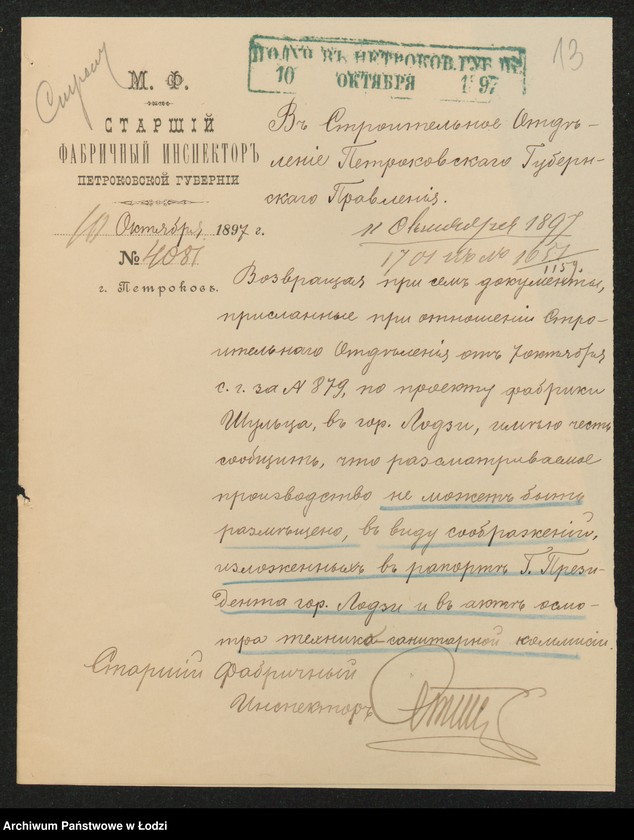 13
ПОЛУЧ. ВЪ ПЕТРОКОВ. ГУБ.
10 ОКТЯБРЯ 1897
М. Ф.
СТАРШІЙ
ФАБРИЧНЫЙ ИНСПЕКТОРЪ
ПЕТРОКОВСКОЙ ГУБЕРНІИ
10 Октября 1897 г.
№ 4081
г. Петроковъ.
Въ Строительное Отдѣ-
леніе Петроковскаго Губерн-
скаго Правленія.
11 Октября 1897
1701
1159.
Возвращая при семъ документы,
присланные при отношеніи Стро-
ительнаго Отдѣленія отъ 7 октября
с. г. за № 879, по проекту фабрики
Шульца, въ гор. Лодзи, имѣю честь
сообщить, что разсматриваемое
производство не можетъ быть
размѣщено, въ виду соображеній,
изложенныхъ въ рапортѣ Г. Прези-
дента гор. Лодзи и въ актѣ осмо-
тра технико-санитарной коммисіи.
Старшій Фабричный
Инспекторъ
Archiwum Państwowe w Łodzi